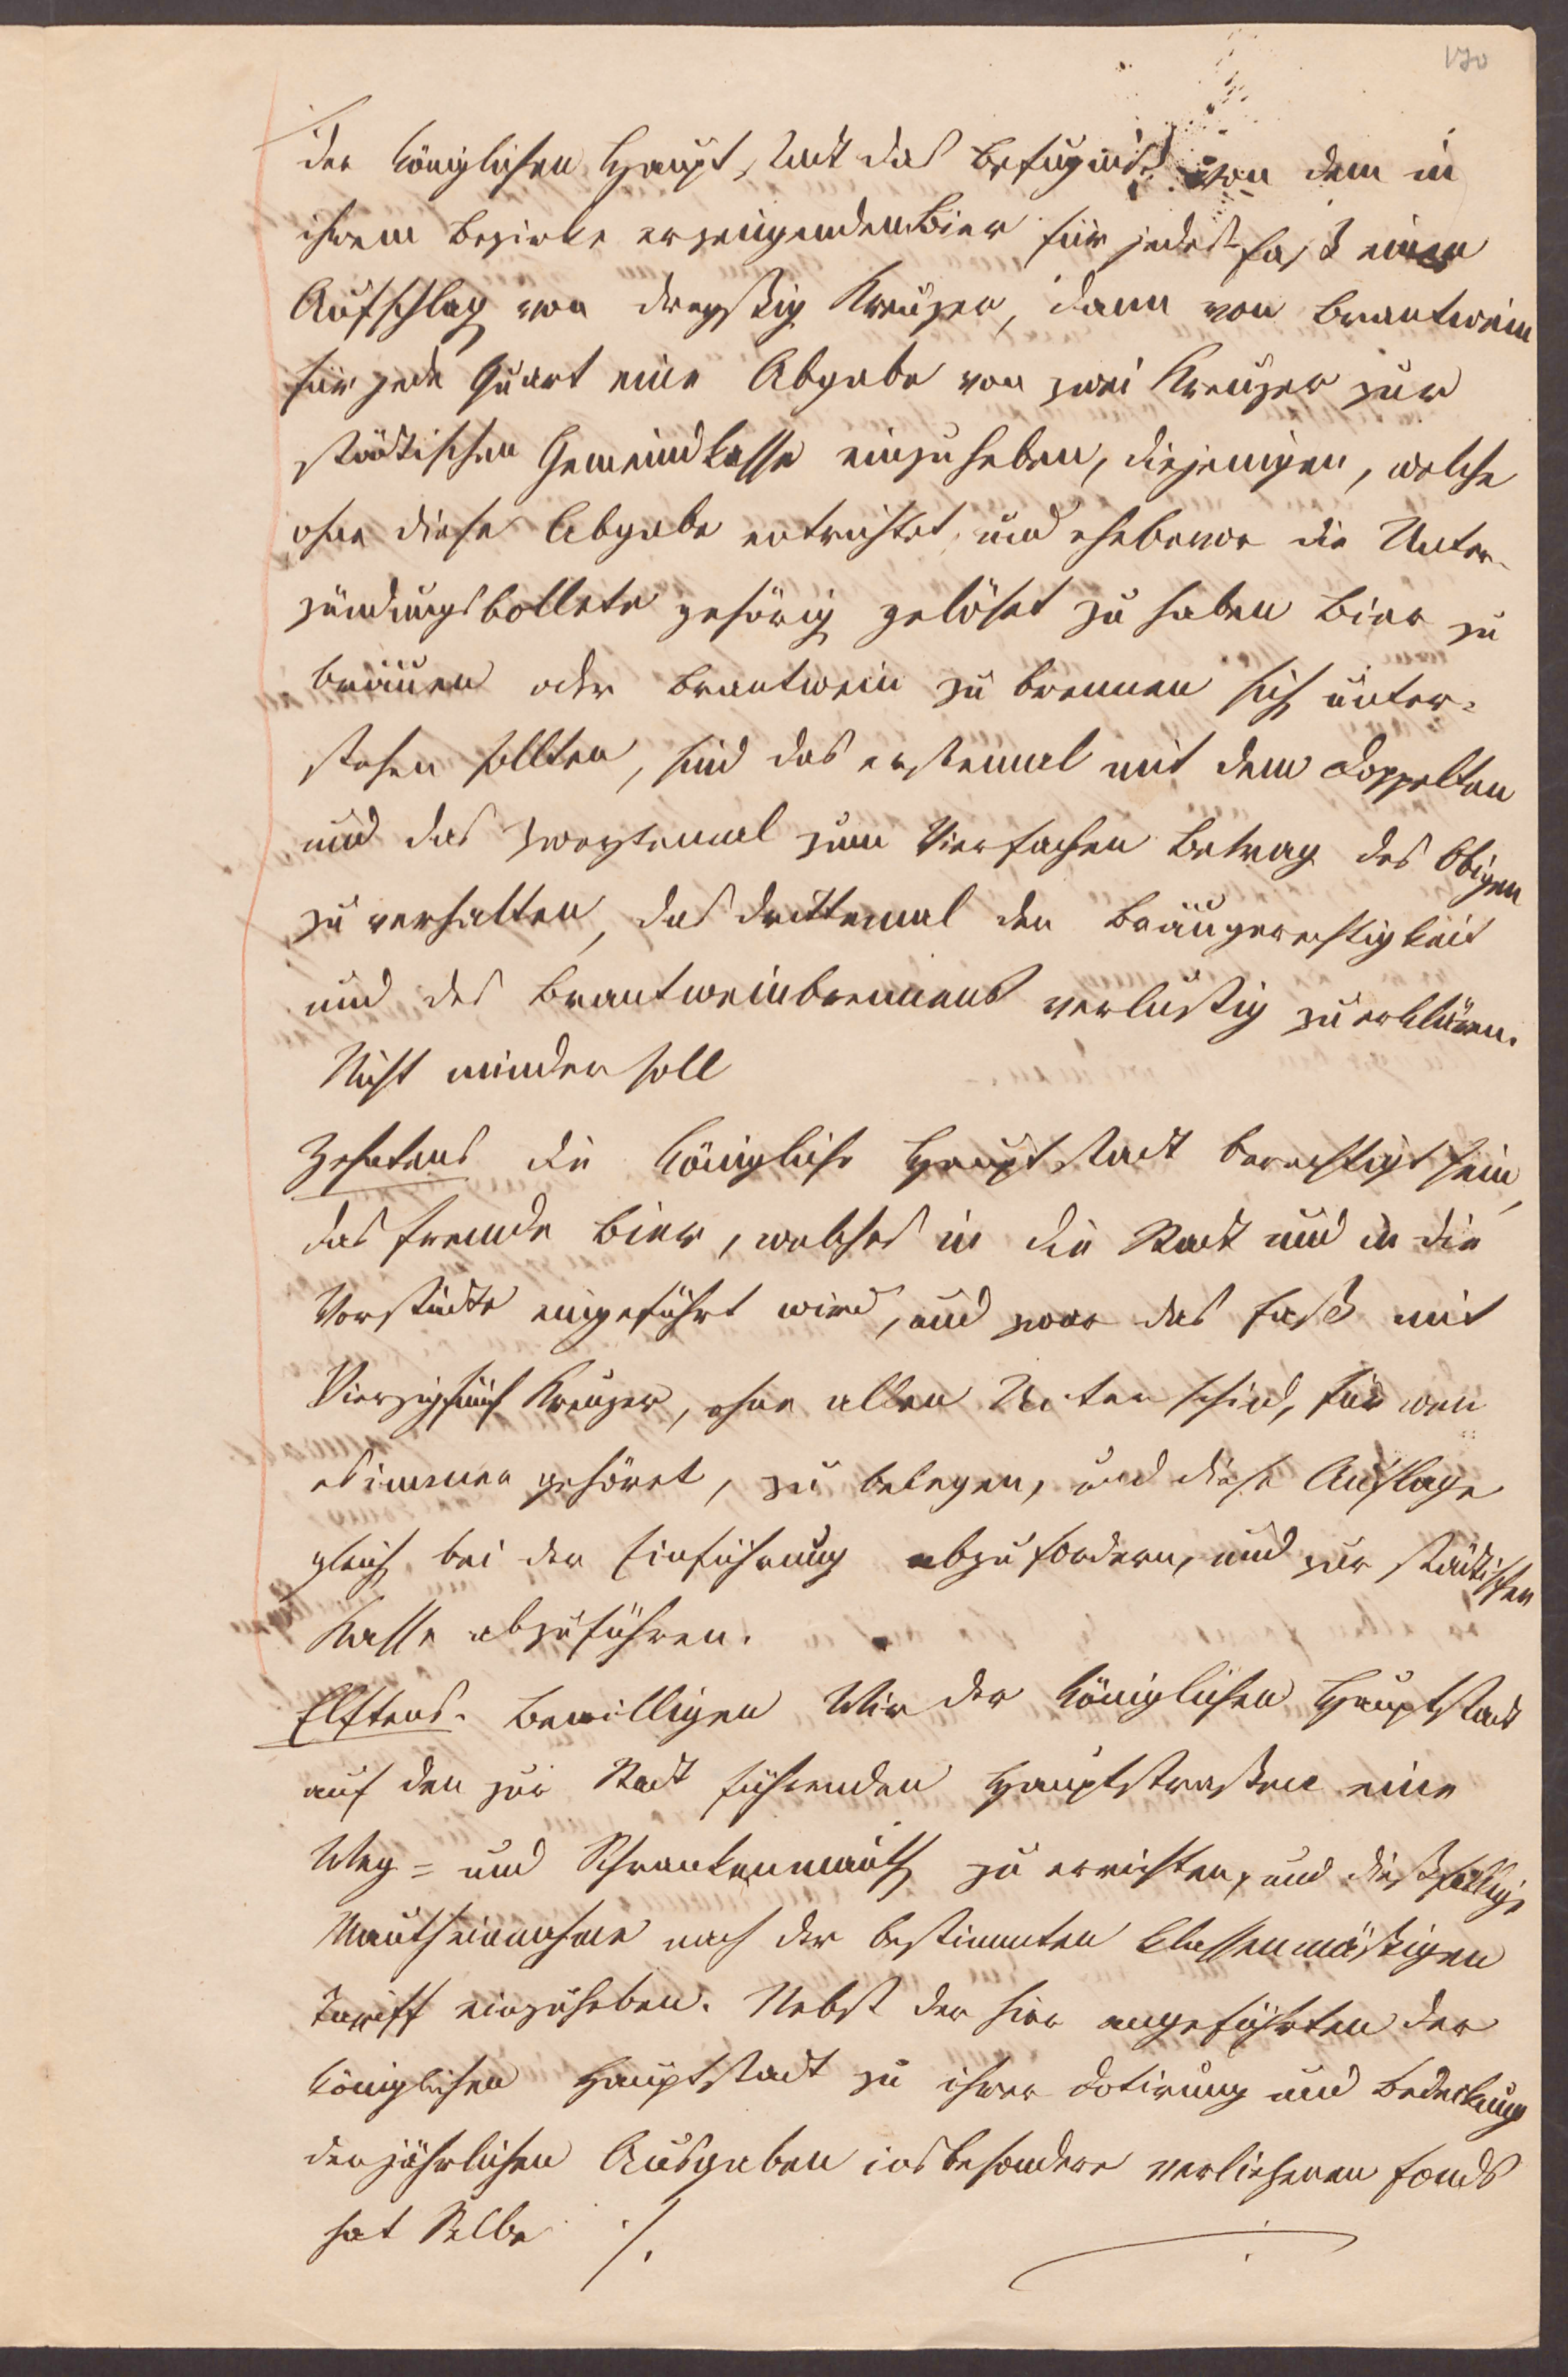 170
der königlichen Hauptstadt das Befugniß von dem in
ihrem Bezirke erzeugenden Bier für jedes Faß einen
Aufschlag von dreyßig Kreuzer, dann von Brantwein
für jede Quart eine Abgabe von zwei Kreuzer zur
städtischen Gemeindkasse einzuheben, diejenigen, welche
ohne diese Abgabe entrichtet, und ehebevor die Unter-
zündungsbollete gehörig gelöset zu haben Bier zu
bräuen oder Brantwein zu brennen sich unter-
stehen sollten, sind das erstemal mit dem doppelten
und das zweytemal zum Vierfachen Betrag des Obigen
zu verhalten, das drittemal der Bräugerechtigkeit
und des Brantweinbrennens verlustig zu erklären.
Nicht minder soll
Zehntens die königliche Hauptstadt berechtigt sein,
das fremde Bier, welches in die Stadt und in die
Vorstädte eingeführt wird, und zwar das Faß mit
Vierzigfünf Kreuzer, ohne allen Unterschied, für wen
es immer gehöret, zu belegen, und diese Auflage
gleich bei der Einführung abzufordern, und zur städtischen
Kasse abzuführen.
Elftens. Bewilligen Wir der königlichen Hauptstadt
auf den zur Stadt führenden Hauptstraßen eine
Weg= und Schrankenmauth zu errichten, und dießfällige
Mautheinnahme nach der bestimmten klassenmäßigen
Tariff einzuheben. Nebst der hier angeführten der
königlichen Hauptstadt zu ihrer Dotirung und Bedeckung
der jährlichen Ausgaben insbesondere verliehenen Fonds
hat Selbe ./.